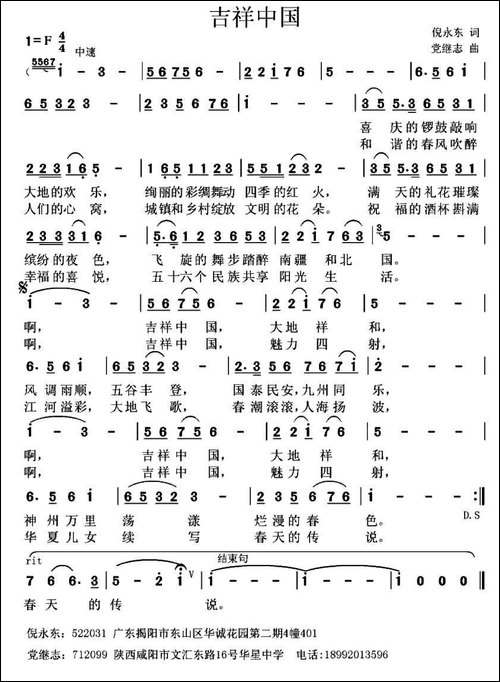 吉祥中国
1=F 4/4 中速
倪永东 词
党继志 曲
5567
( i - 3 - | 5 6 7 5 6 - | 2 2 i 7 6 | 5 - - - | 6· 5 6 i |
6 5 3 2 3 | 2 3 5 6 7 6 | i - - - ) | 3 5 5·3 6 5 3 1 |
喜 庆的锣鼓敲响
和 谐的春风吹醉
2 2 3 1 6 5 - | 1 6 5 1 1 2 3 | 5 5 i 6 5 - | 3 5 5·3 6 5 3 1 |
大地的欢 乐, 绚丽的彩绸舞动 四季的红 火, 满 天的礼花璀璨
人们的心 窝, 城镇和乡村绽放 文明的花 朵。 祝 福的酒杯斟满
2 3 3 3 1 6 - | 5·6 1 2 3 5 6 | 2 2 i 7 6 3 | 5 - - - |
缤纷的夜 色, 飞 旋的舞步踏醉 南疆 和北 国。
幸福的喜 悦, 五十六个民族共享 阳光 生 活。
i - 3 - | 5 6 7 5 6 - | 2 2 i 7 6 | 5 - - - |
啊, 吉祥中 国, 大地 祥 和,
啊, 吉祥中 国, 魅力 四 射,
6· 5 6 i | 6 5 3 2 3 - | 2·3 5 6 7 7 6 | 5 - - - |
风 调雨顺, 五谷丰 登, 国 泰民安,九州同 乐,
江 河溢彩, 大地飞 歌, 春 潮滚滚,人海扬 波,
i - 3 - | 5 6 7 5 6 - | 2 2 i 7 6 | 5 - - - |
啊, 吉祥中 国, 大地 祥 和,
啊, 吉祥中 国, 魅力 四 射,
6· 5 6 i | 6 5 3 2 3 - | 2 3 5 6 7 6 | i - - - :||
神 州万里 荡 漾 烂漫的春 色。 D.S
华 夏儿女 续 写 春天的传 说。
rit 结束句
7 6 6· 3 | 5 - 2 i V | i - - - | i - - - | i 0 0 0 ||
春 天 的 传 说。
倪永东:522031 广东揭阳市东山区华诚花园第二期4幢401
党继志:712099 陕西咸阳市文汇东路16号华星中学 电话:18992013596